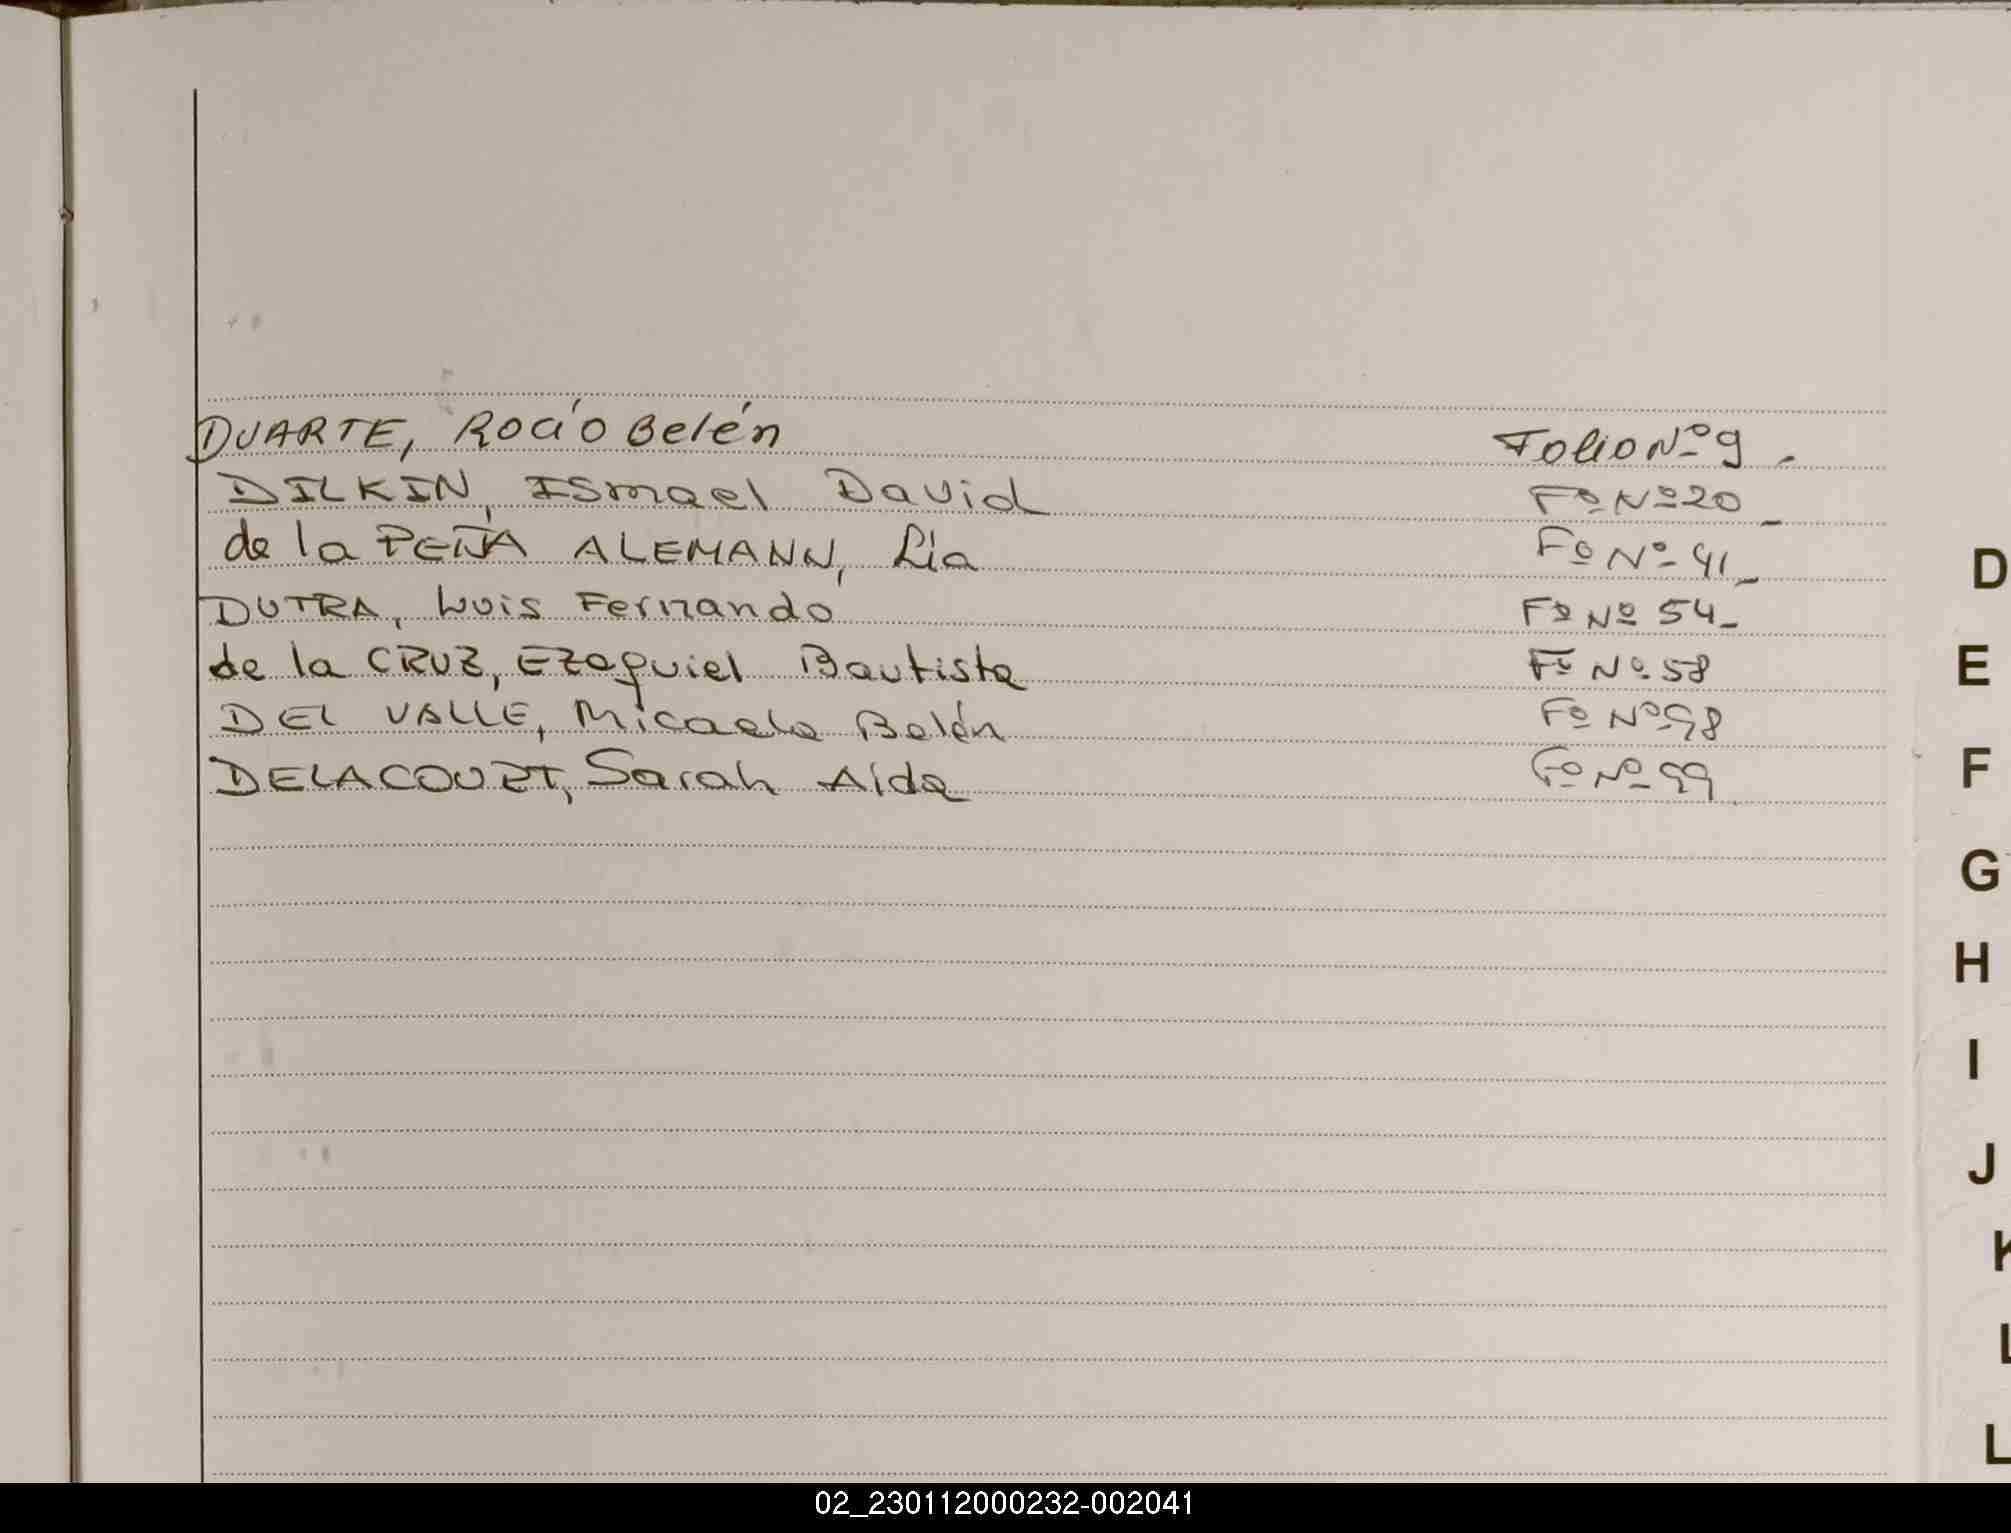 DUARTE, Rocío Belén Folio Nº 9.
DILKIN, Ismael David Fº Nº 20_
de la PEÑA ALEMANN, Lía Fº Nº 41_
DUTRA, Luis Fernando Fº Nº 54_
de la CRUZ, Ezequiel Bautista Fº Nº 58
DEL VALLE, Micaela Belén Fº Nº 98
DELACOURT, Sarah Aida Fº Nº 99
D
E
F
G
H
I
J
K
L
L
02_230112000232-002041